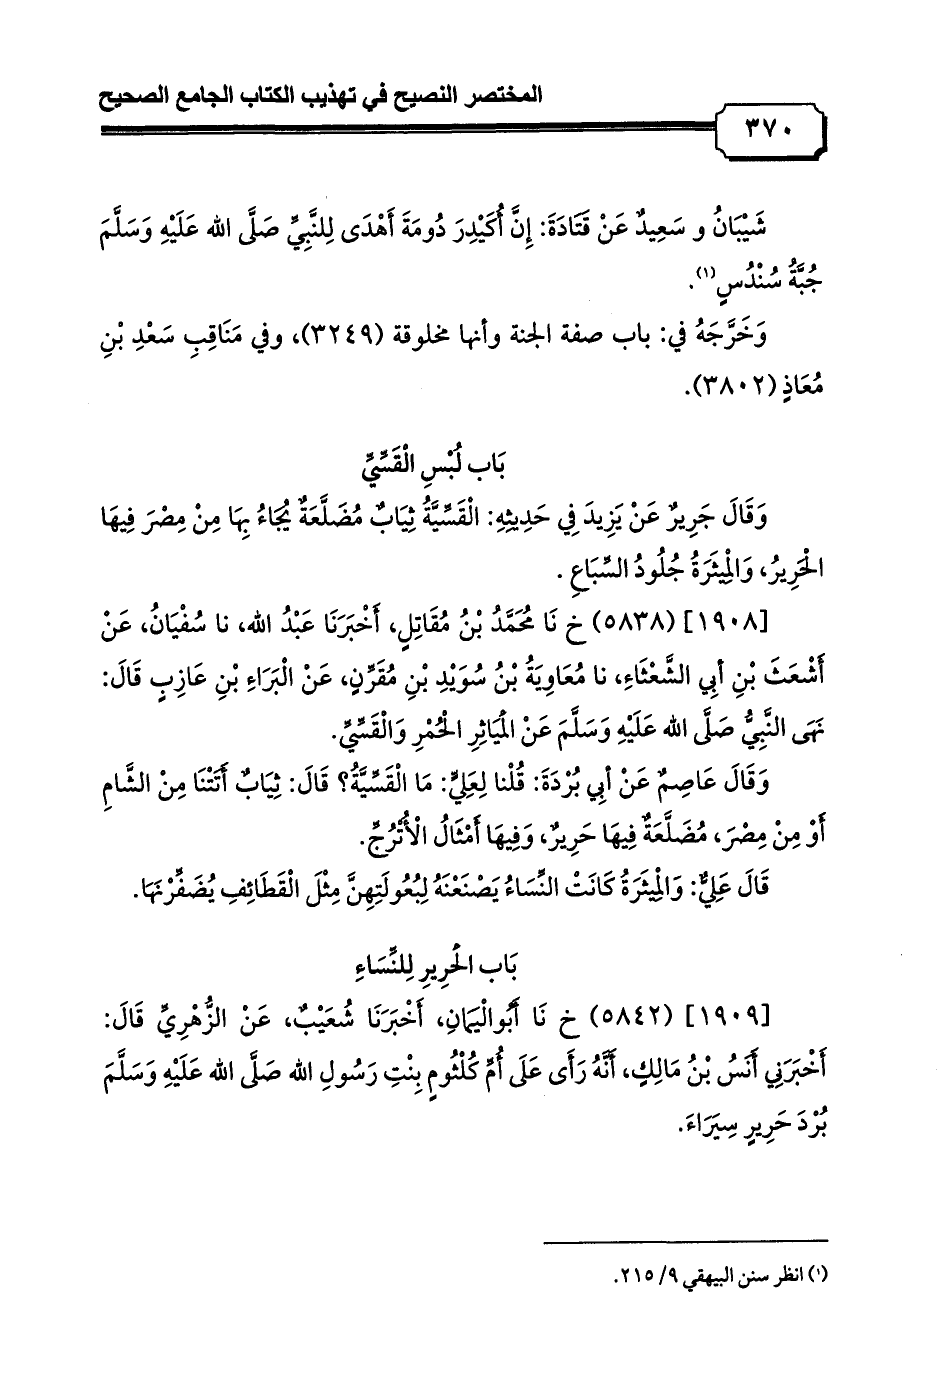 المختصر النصيح في تهذيب الكتاب الجامع الصحيح
٣٧٠
شَيْبَانُ و سَعِيدٌ عَنْ قَتَادَةَ: إِنَّ أُكَيْدِرَ دُومَةَ أَهْدَى لِلنَّبِيِّ صَلَّى الله عَلَيْهِ وَسَلَّمَ
جُبَّةُ سُنْدُسٍ(١).
وَخَرَّجَهُ في: باب صفة الجنة وأنها مخلوقة (٣٢٤٩)، وفي مَنَاقِبِ سَعْدِ بْنِ
مُعَاذٍ (٣٨٠٢).
بَاب لُبْسِ الْقَسِّيِّ
وَقَالَ جَرِيرٌ عَنْ يَزِيدَ فِي حَدِيثِهِ: الْقَسِّيَّةُ ثِيَابٌ مُضَلَّعَةٌ يُجَاءُ بِهَا مِنْ مِصْرَ فِيهَا
الْحَرِيرُ، وَالْمِيثَرَةُ جُلُودُ السِّبَاعِ .
[١٩٠٨] (٥٨٣٨) خ نَا مُحَمَّدُ بْنُ مُقَاتِلٍ، أَخْبَرَنَا عَبْدُ الله، نا سُفْيَانُ، عَنْ
أَشْعَثَ بْنِ أبِي الشَّعْثَاءِ، نا مُعَاوِيَةُ بْنُ سُوَيْدِ بْنِ مُقَرِّنٍ، عَنْ الْبَرَاءِ بْنِ عَازِبٍ قَالَ:
نَهَى النَّبِيُّ صَلَّى الله عَلَيْهِ وَسَلَّمَ عَنْ الْمَيَاثِرِ الْحُمْرِ وَالْقَسِّيِّ.
وَقَالَ عَاصِمٌ عَنْ أبِي بُرْدَةَ: قُلْنا لِعَلِيٍّ: مَا الْقَسِّيَّةُ؟ قَالَ: ثِيَابٌ أَتَتْنَا مِنْ الشَّامِ
أَوْ مِنْ مِصْرَ، مُضَلَّعَةٌ فِيهَا حَرِيرٌ، وَفِيهَا أَمْثَالُ الْأُتْرُجِّ.
قَالَ عَلِيٌّ: وَالْمِيثَرَةُ كَانَتْ النِّسَاءُ يَصْنَعْنَهُ لِبُعُولَتِهِنَّ مِثْلَ الْقَطَائِفِ يُصَفِّرْنَهَا.
بَاب الْحَرِيرِ لِلنِّسَاءِ
[١٩٠٩] (٥٨٤٢) خ نَا أَبُوالْيَمَانِ، أَخْبَرَنَا شُعَيْبٌ، عَنْ الزُّهْرِيِّ قَالَ:
أَخْبَرَنِي أَنَسُ بْنُ مَالِكٍ، أَنَّهُ رَأَى عَلَى أُمِّ كُلْثُومٍ بِنْتِ رَسُولِ الله صَلَّى الله عَلَيْهِ وَسَلَّمَ
بُرْدَ حَرِيرٍ سِيَرَاءَ.
(١) انظر سنن البيهقي ٩/ ٢١٥.